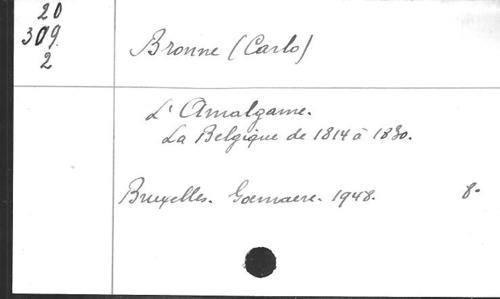 20
309
2
Bronne (Carlo)
L'Amalgame.
La Belgique de 1814 à 1830.
Bruxelles. Goemaere. 1948. 8.